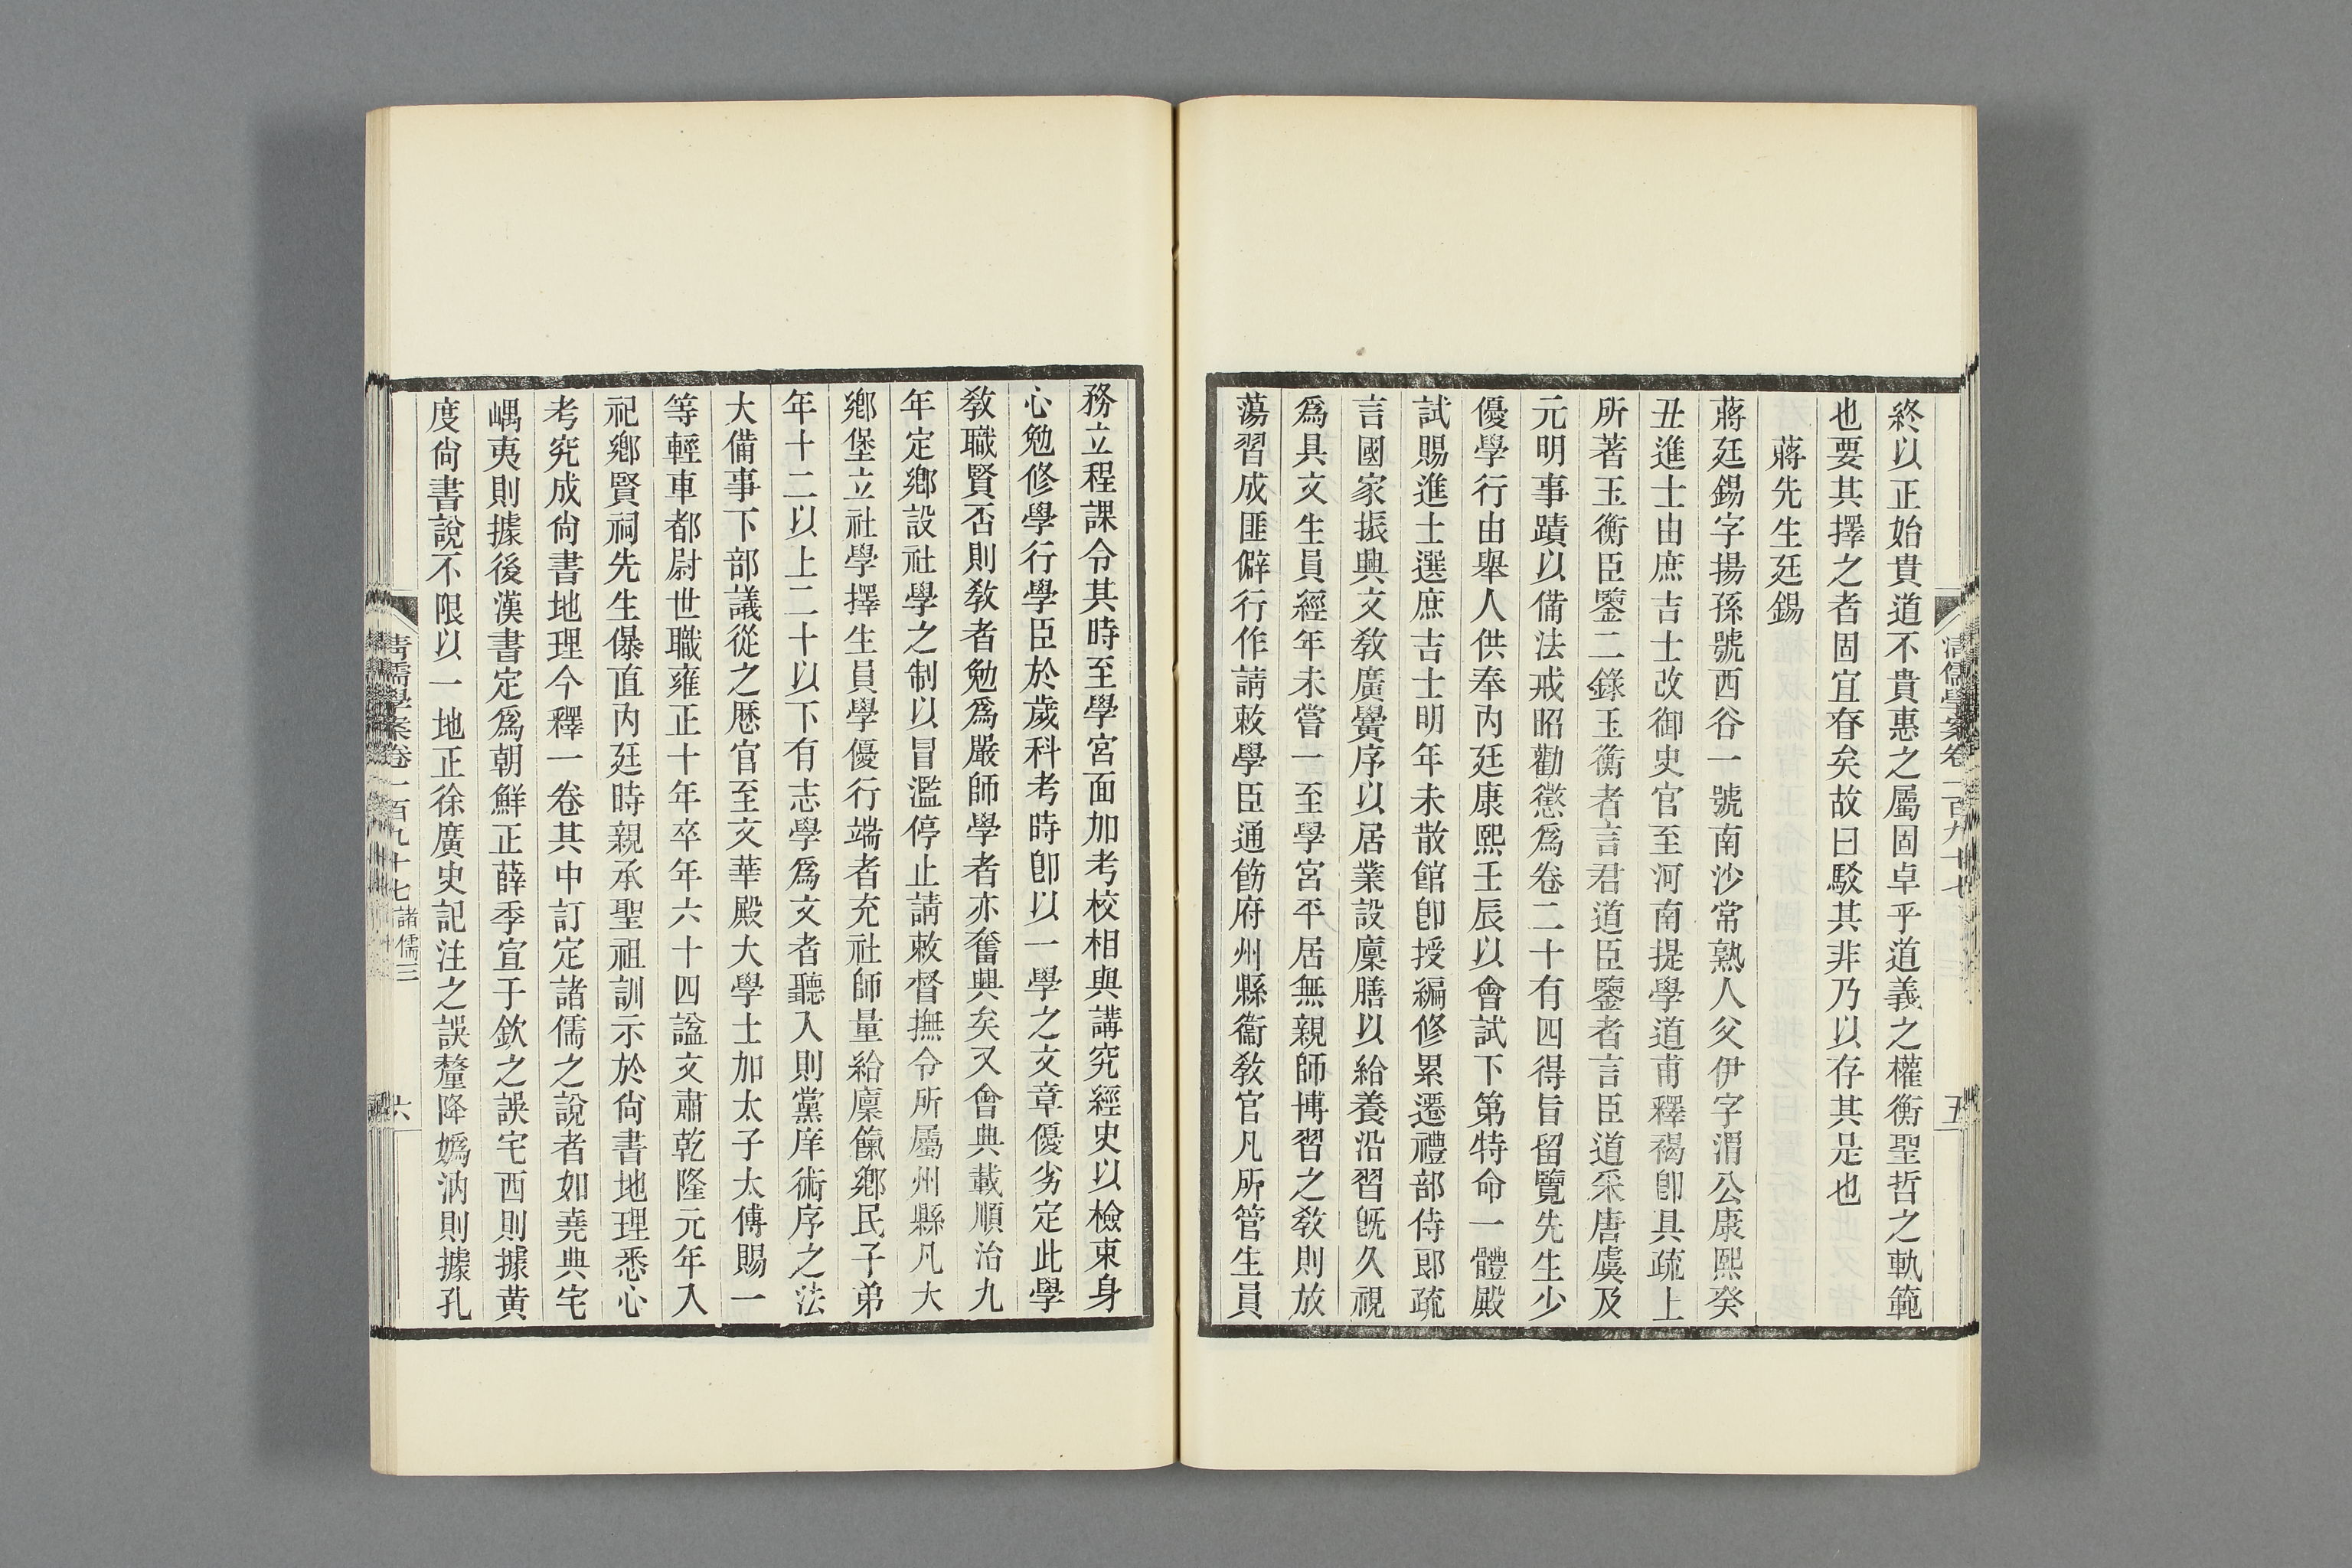 終以正始貴道不貴惠之屬固卓乎道義之權衡聖哲之軌範
也要其擇之者固宜眘矣故曰駁其非乃以存其是也
蔣先生廷錫
蔣廷錫字揚孫號西谷一號南沙常熟人父伊字渭公康熙癸
丑進士由庶吉士改御史官至河南提學道甫釋褐卽具疏上
所著玉衡臣鑒二錄玉衡者言君道臣鑒者言臣道采唐虞及
元明事蹟以備法戒昭勸懲爲卷二十有四得旨留覽先生少
優學行由舉人供奉內廷康熙壬辰以會試下第特命一體殿
試賜進士選庶吉士明年未散館卽授編修累遷禮部侍郎疏
言國家振興文敎廣黌序以居業設廩膳以給養沿習旣久視
爲具文生員經年未嘗一至學宮平居無親師博習之敎則放
蕩習成匪僻行作請敕學臣通飭府州縣衞敎官凡所管生員
清儒學案卷一百九十七
五
務立程課令其時至學宮面加考校相與講究經史以檢束身
心勉修學行學臣於歲科考時卽以一學之文章優劣定此學
敎職賢否則敎者勉爲嚴師學者亦奮興矣又會典載順治九
年定鄕設社學之制以冒濫停止請敕督撫令所屬州縣凡大
鄕堡立社學擇生員學優行端者充社師量給廩餼鄕民子弟
年十二以上二十以下有志學爲文者聽入則黨庠術序之法
大備事下部議從之歷官至文華殿大學士加太子太傅賜一
等輕車都尉世職雍正十年卒年六十四諡文肅乾隆元年入
祀鄕賢祠先生儤直內廷時親承聖祖訓示於尙書地理悉心
考究成尙書地理今釋一卷其中訂定諸儒之說者如堯典宅
嵎夷則據後漢書定爲朝鮮正薛季宣于欽之誤宅西則據黃
度尙書說不限以一地正徐廣史記注之誤釐降嬀汭則據孔
清儒學案卷一百九十七 諸儒三
六